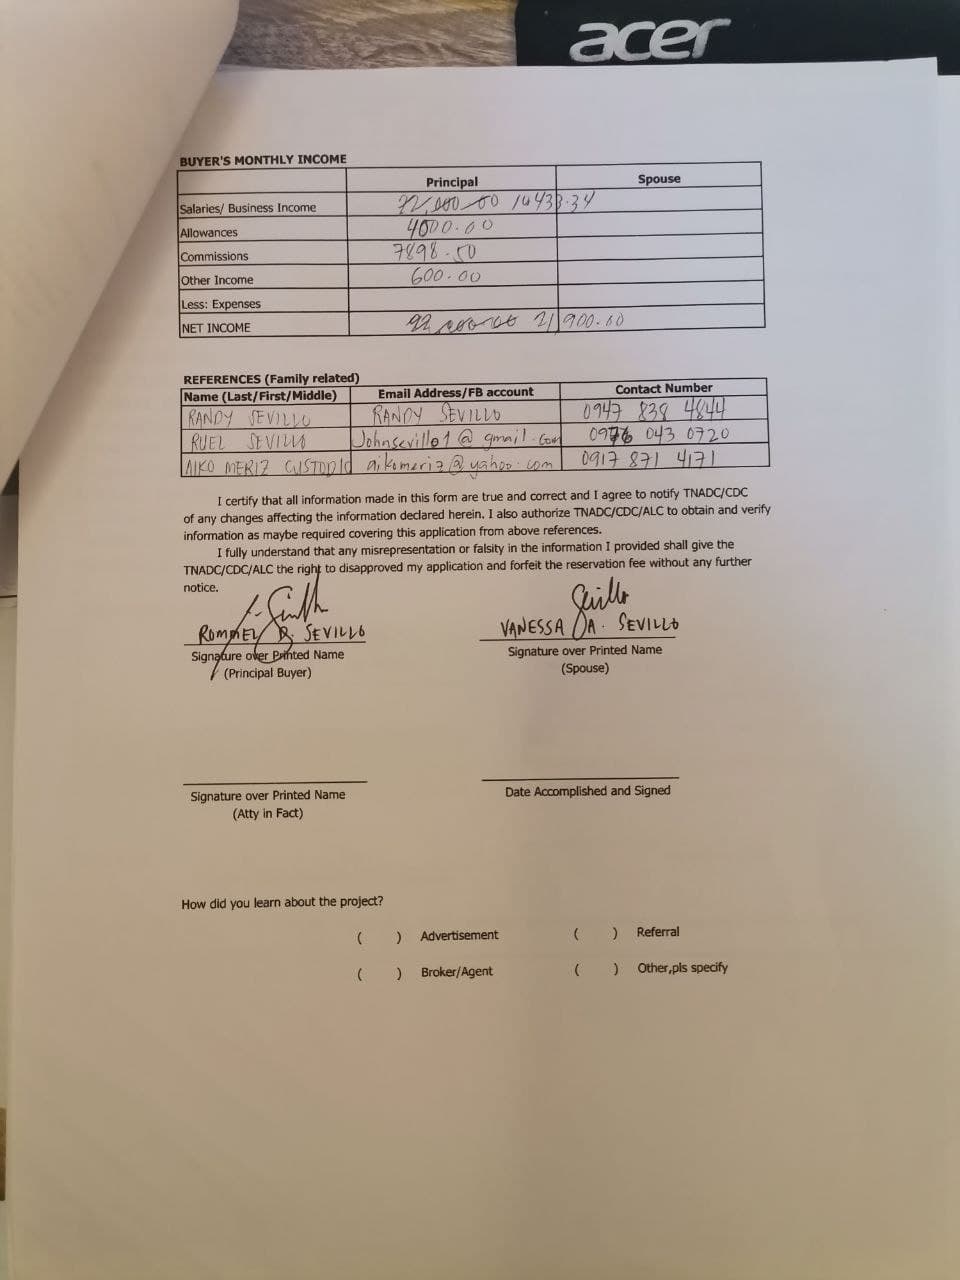 acer
BUYER'S MONTHLY INCOME
Principal Spouse
Salaries/ Business Income 22,000.00 14433.34
Allowances 4000.00
Commissions 7898.50
Other Income 600.00
Less: Expenses
NET INCOME 21,900.60
REFERENCES (Family related)
Name (Last/First/Middle) Email Address/FB account Contact Number
RANDY SEVILLO RANDY SEVILLO 0947 838 4844
RUEL SEVILLO Johnsevillo1@gmail.com 0976 043 0720
AIKO MERIZ CUSTODIO aikomeriz@yahoo.com 0917 871 4171
I certify that all information made in this form are true and correct and I agree to notify TNADC/CDC
of any changes affecting the information declared herein. I also authorize TNADC/CDC/ALC to obtain and verify
information as maybe required covering this application from above references.
I fully understand that any misrepresentation or falsity in the information I provided shall give the
TNADC/CDC/ALC the right to disapproved my application and forfeit the reservation fee without any further
notice.
ROMMEL R. SEVILLO VANESSA A. SEVILLO
Signature over Printed Name Signature over Printed Name
(Principal Buyer) (Spouse)
Signature over Printed Name Date Accomplished and Signed
(Atty in Fact)
How did you learn about the project?
( ) Advertisement ( ) Referral
( ) Broker/Agent ( ) Other,pls specify